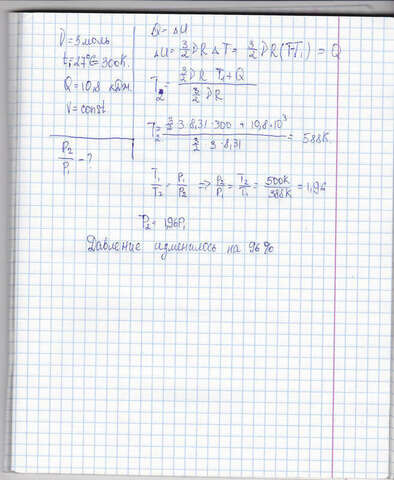 ν = 3 моль
t₁ = 27°C = 300K
Q = 10,8 кДж
V = const
P₂/P₁ - ?
Q = ΔU
ΔU = 3/2 νR ΔT = 3/2 νR (T-T₁) = Q
T₂ = (3/2 νR T₁ + Q) / (3/2 νR)
T₂ = (3/2 · 3 · 8,31 · 300 + 10,8 · 10³) / (3/2 · 3 · 8,31) = 588K
T₁/T₂ = P₁/P₂ => P₂/P₁ = T₂/T₁ = 500K/388K = 1,96
P₂ = 1,96P₁
Давление изменилось на 96%